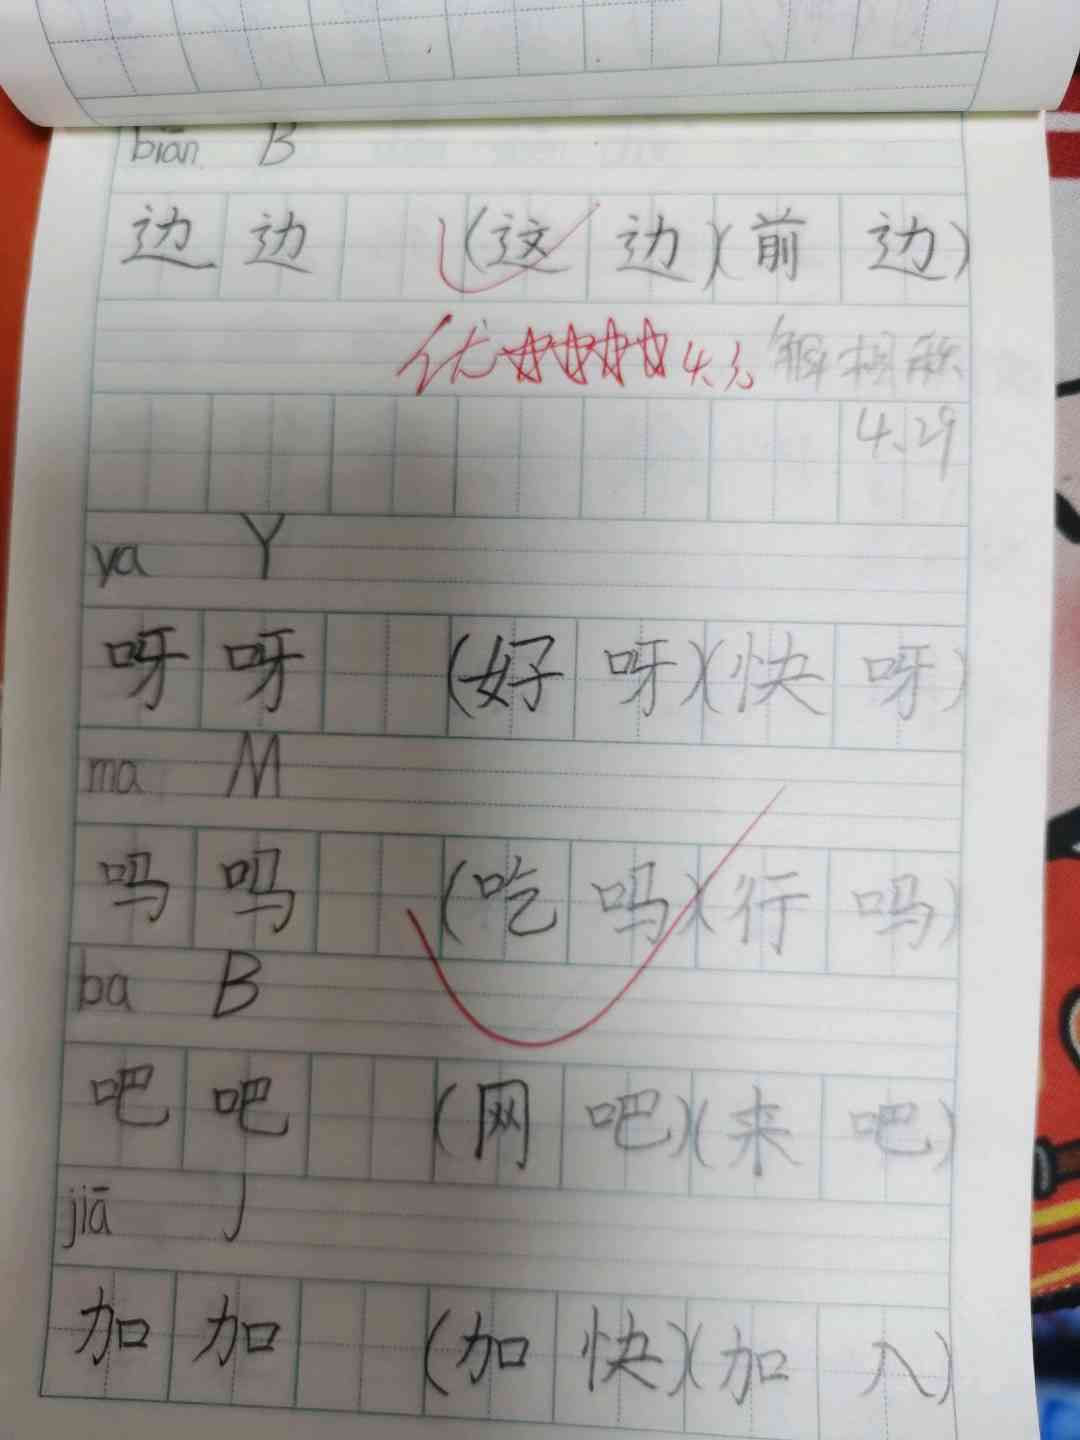 biān B
边 边 (这 边)(前 边)
优 4.30
4.29
ya Y
呀 呀 (好 呀)(快 呀)
ma M
吗 吗 (吃 吗)(行 吗)
ba B
吧 吧 (网 吧)(来 吧)
jiā J
加 加 (加 快)(加 入)